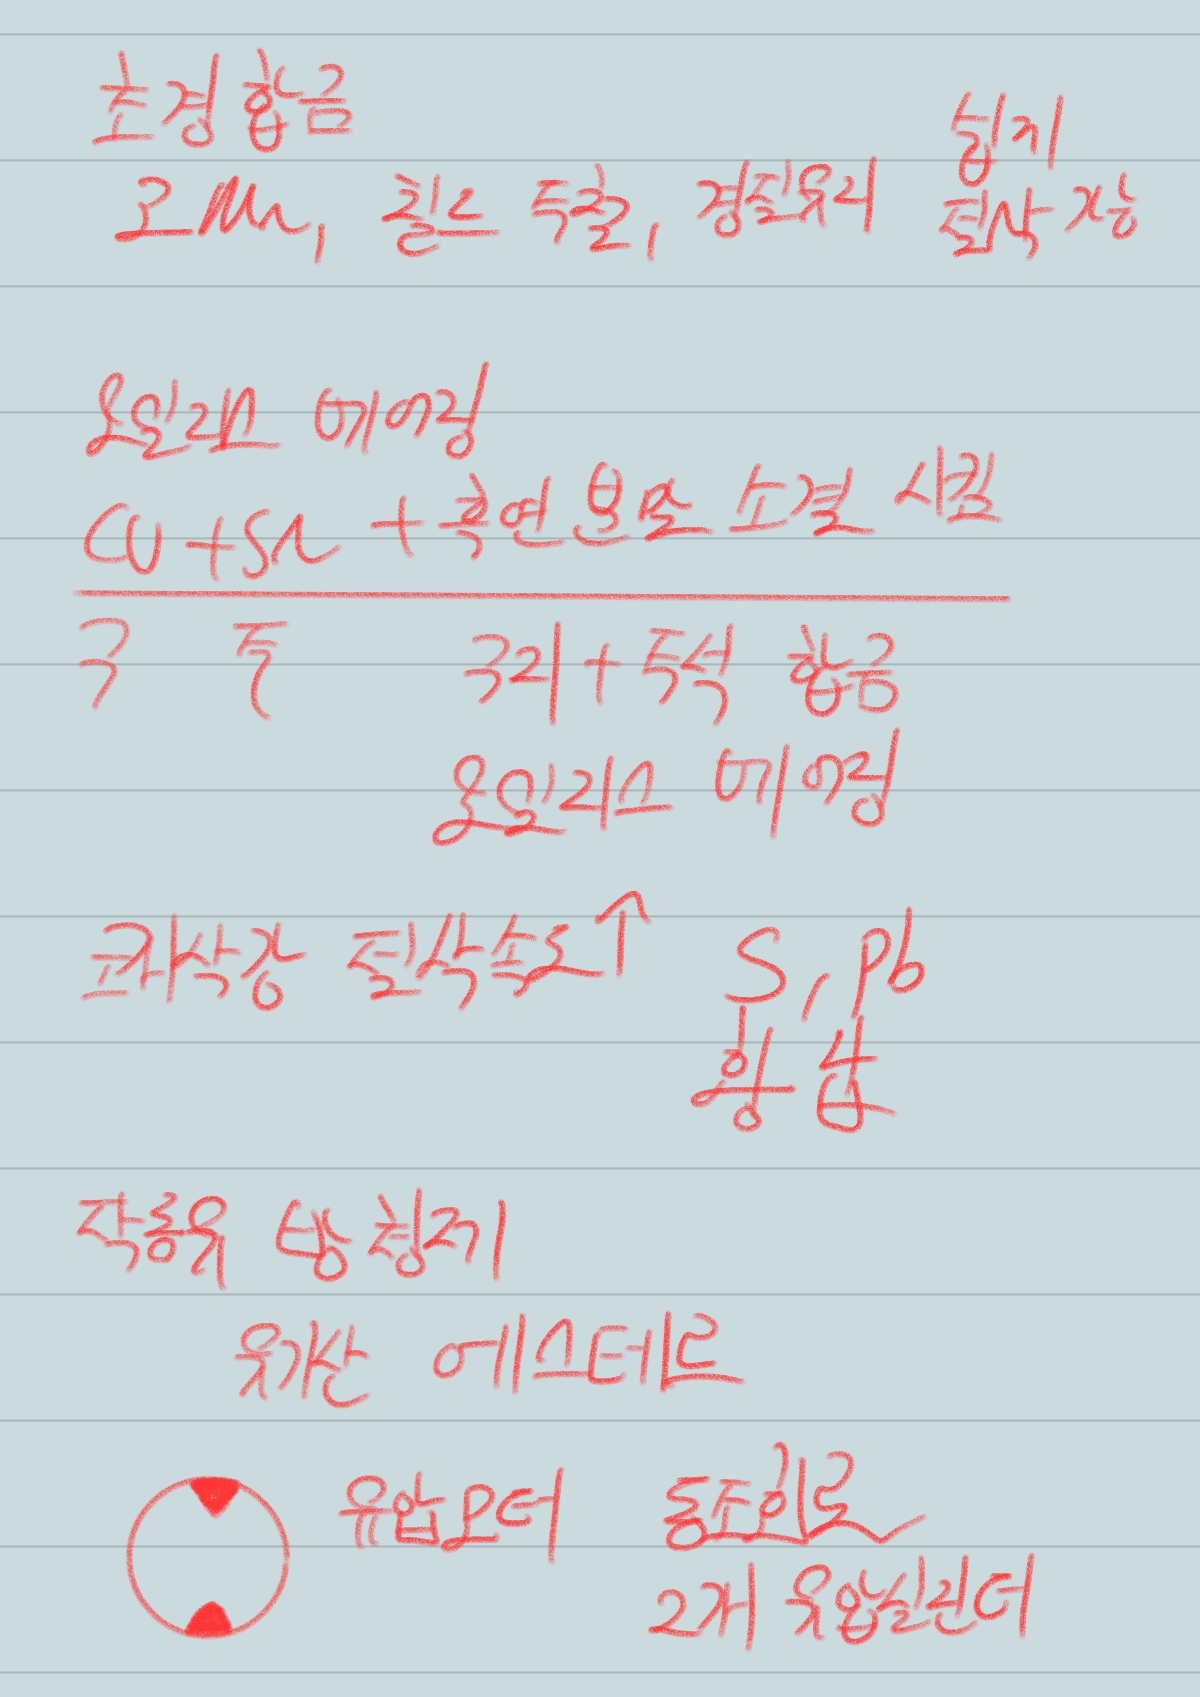 초경합금
고Mn, 칠드 주철, 경질유리 쉽게
절삭가능
오일리스 베어링
Cu+Sn + 흑연 분말 소결 시킴
구 주 구리+주석 합금
오일리스 베어링
쾌삭강 절삭속도↑ S, Pb
황 납
작동유 방청제
유기산 에스테르
유압모터 동조회로
2개 유압실린더